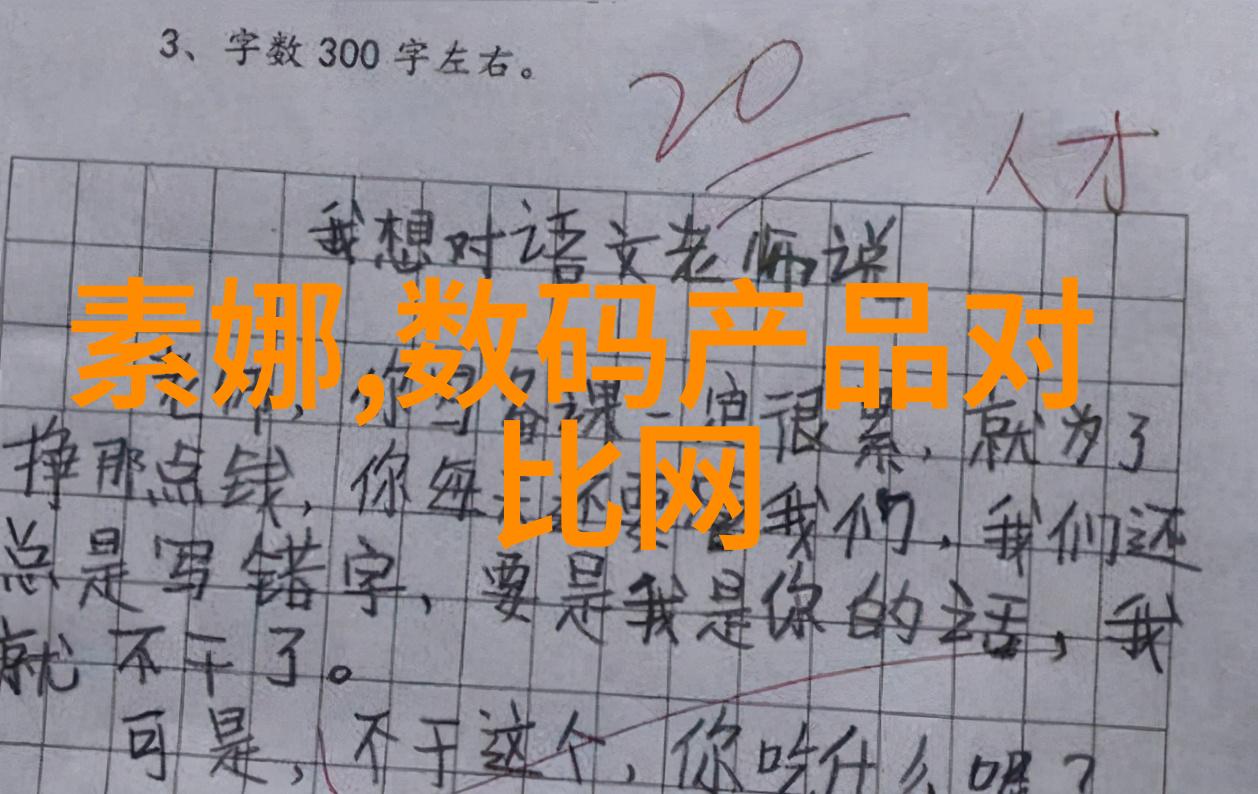 3、字数 300 字左右。
20
人才
我想对语文老师说
素娜,数码产品对
比网
老师，你写备课一定很累，就为了
挣那点钱，你每天还要管我们，我们还
总是写错字，要是我是你的话，我
就不干了。
可是，不干这个，你吃什么呢？